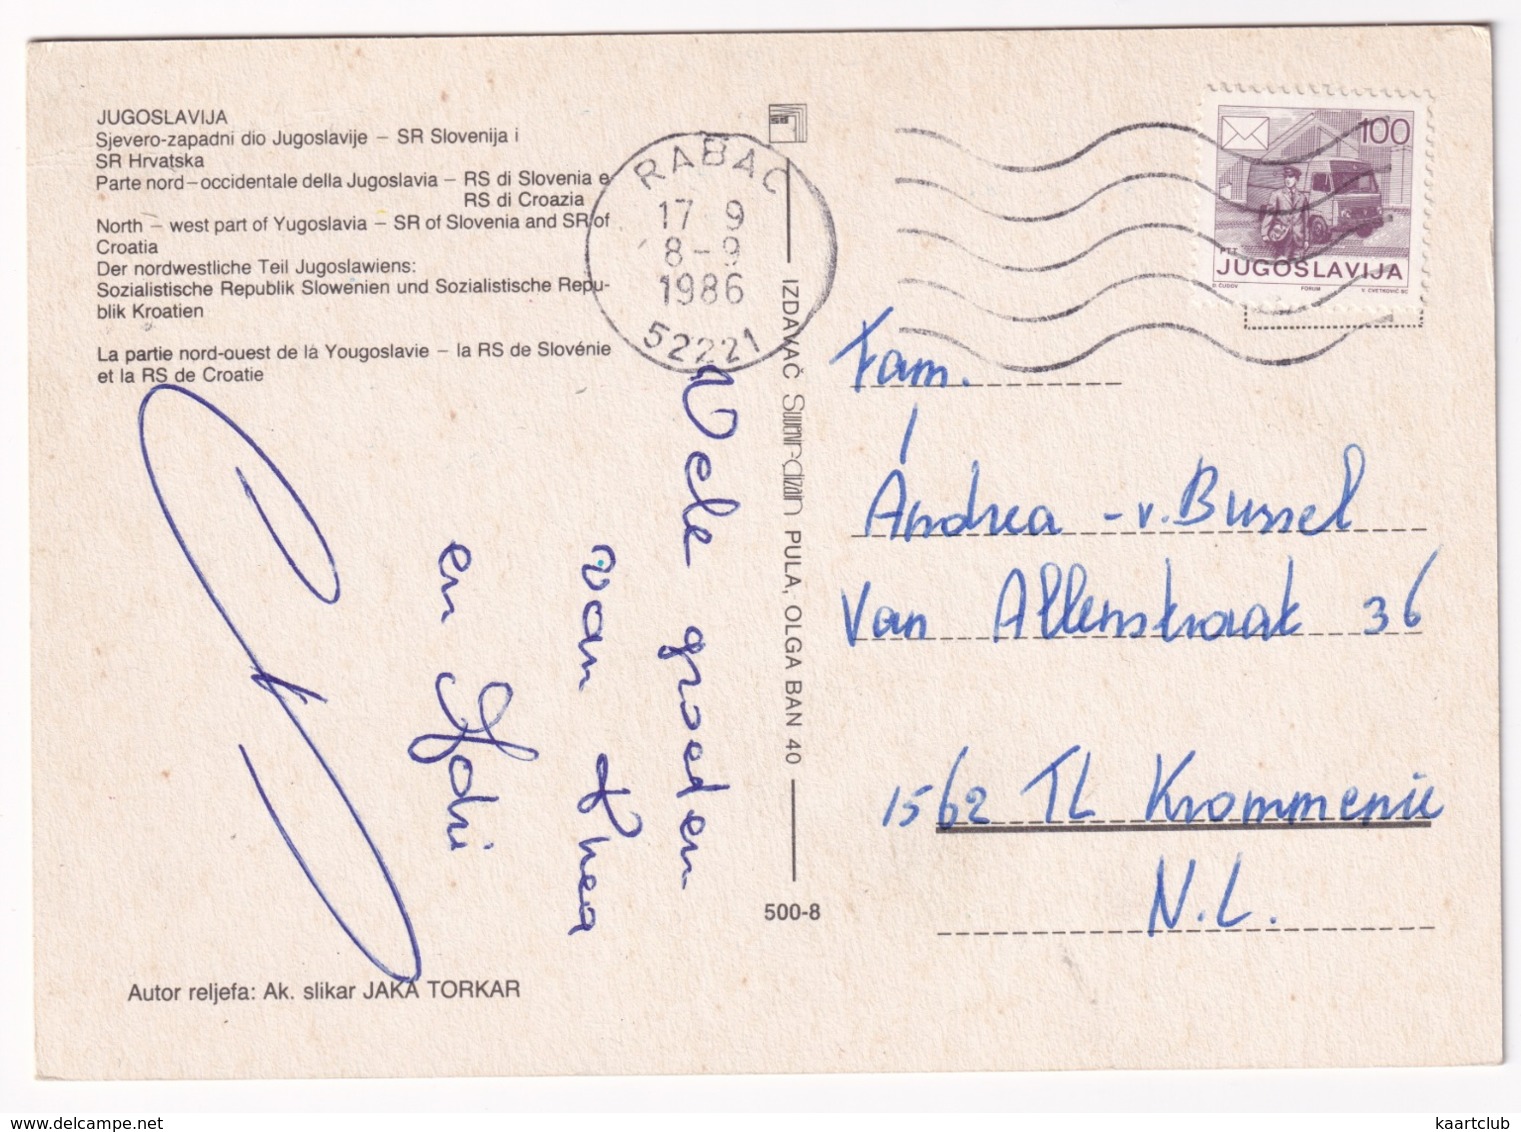 JUGOSLAVIJA
Sjevero-zapadni dio Jugoslavije – SR Slovenija i
SR Hrvatska
Parte nord-occidentale della Jugoslavia – RS di Slovenia e
RS di Croazia
North – west part of Yugoslavia – SR of Slovenia and SR of
Croatia
Der nordwestliche Teil Jugoslawiens:
Sozialistische Republik Slowenien und Sozialistische Repu-
blik Kroatien
La partie nord-ouest de la Yougoslavie – la RS de Slovénie
et la RS de Croatie
Vele groeten
van Thea
en
Autor reljefa: Ak. slikar JAKA TORKAR
RABAC
17 9
8-9
1986
52221
IZDAVAČ Suvenir-dizajn PULA, OLGA BAN 40
500-8
100
PTT
JUGOSLAVIJA
D. ČUDOV FORUM V. CVETKOVIĆ SC
Fam.
Andrea - v. Bussel
Van Allenstraat 36
1562 TL Krommenie
N.L.
kaartclub